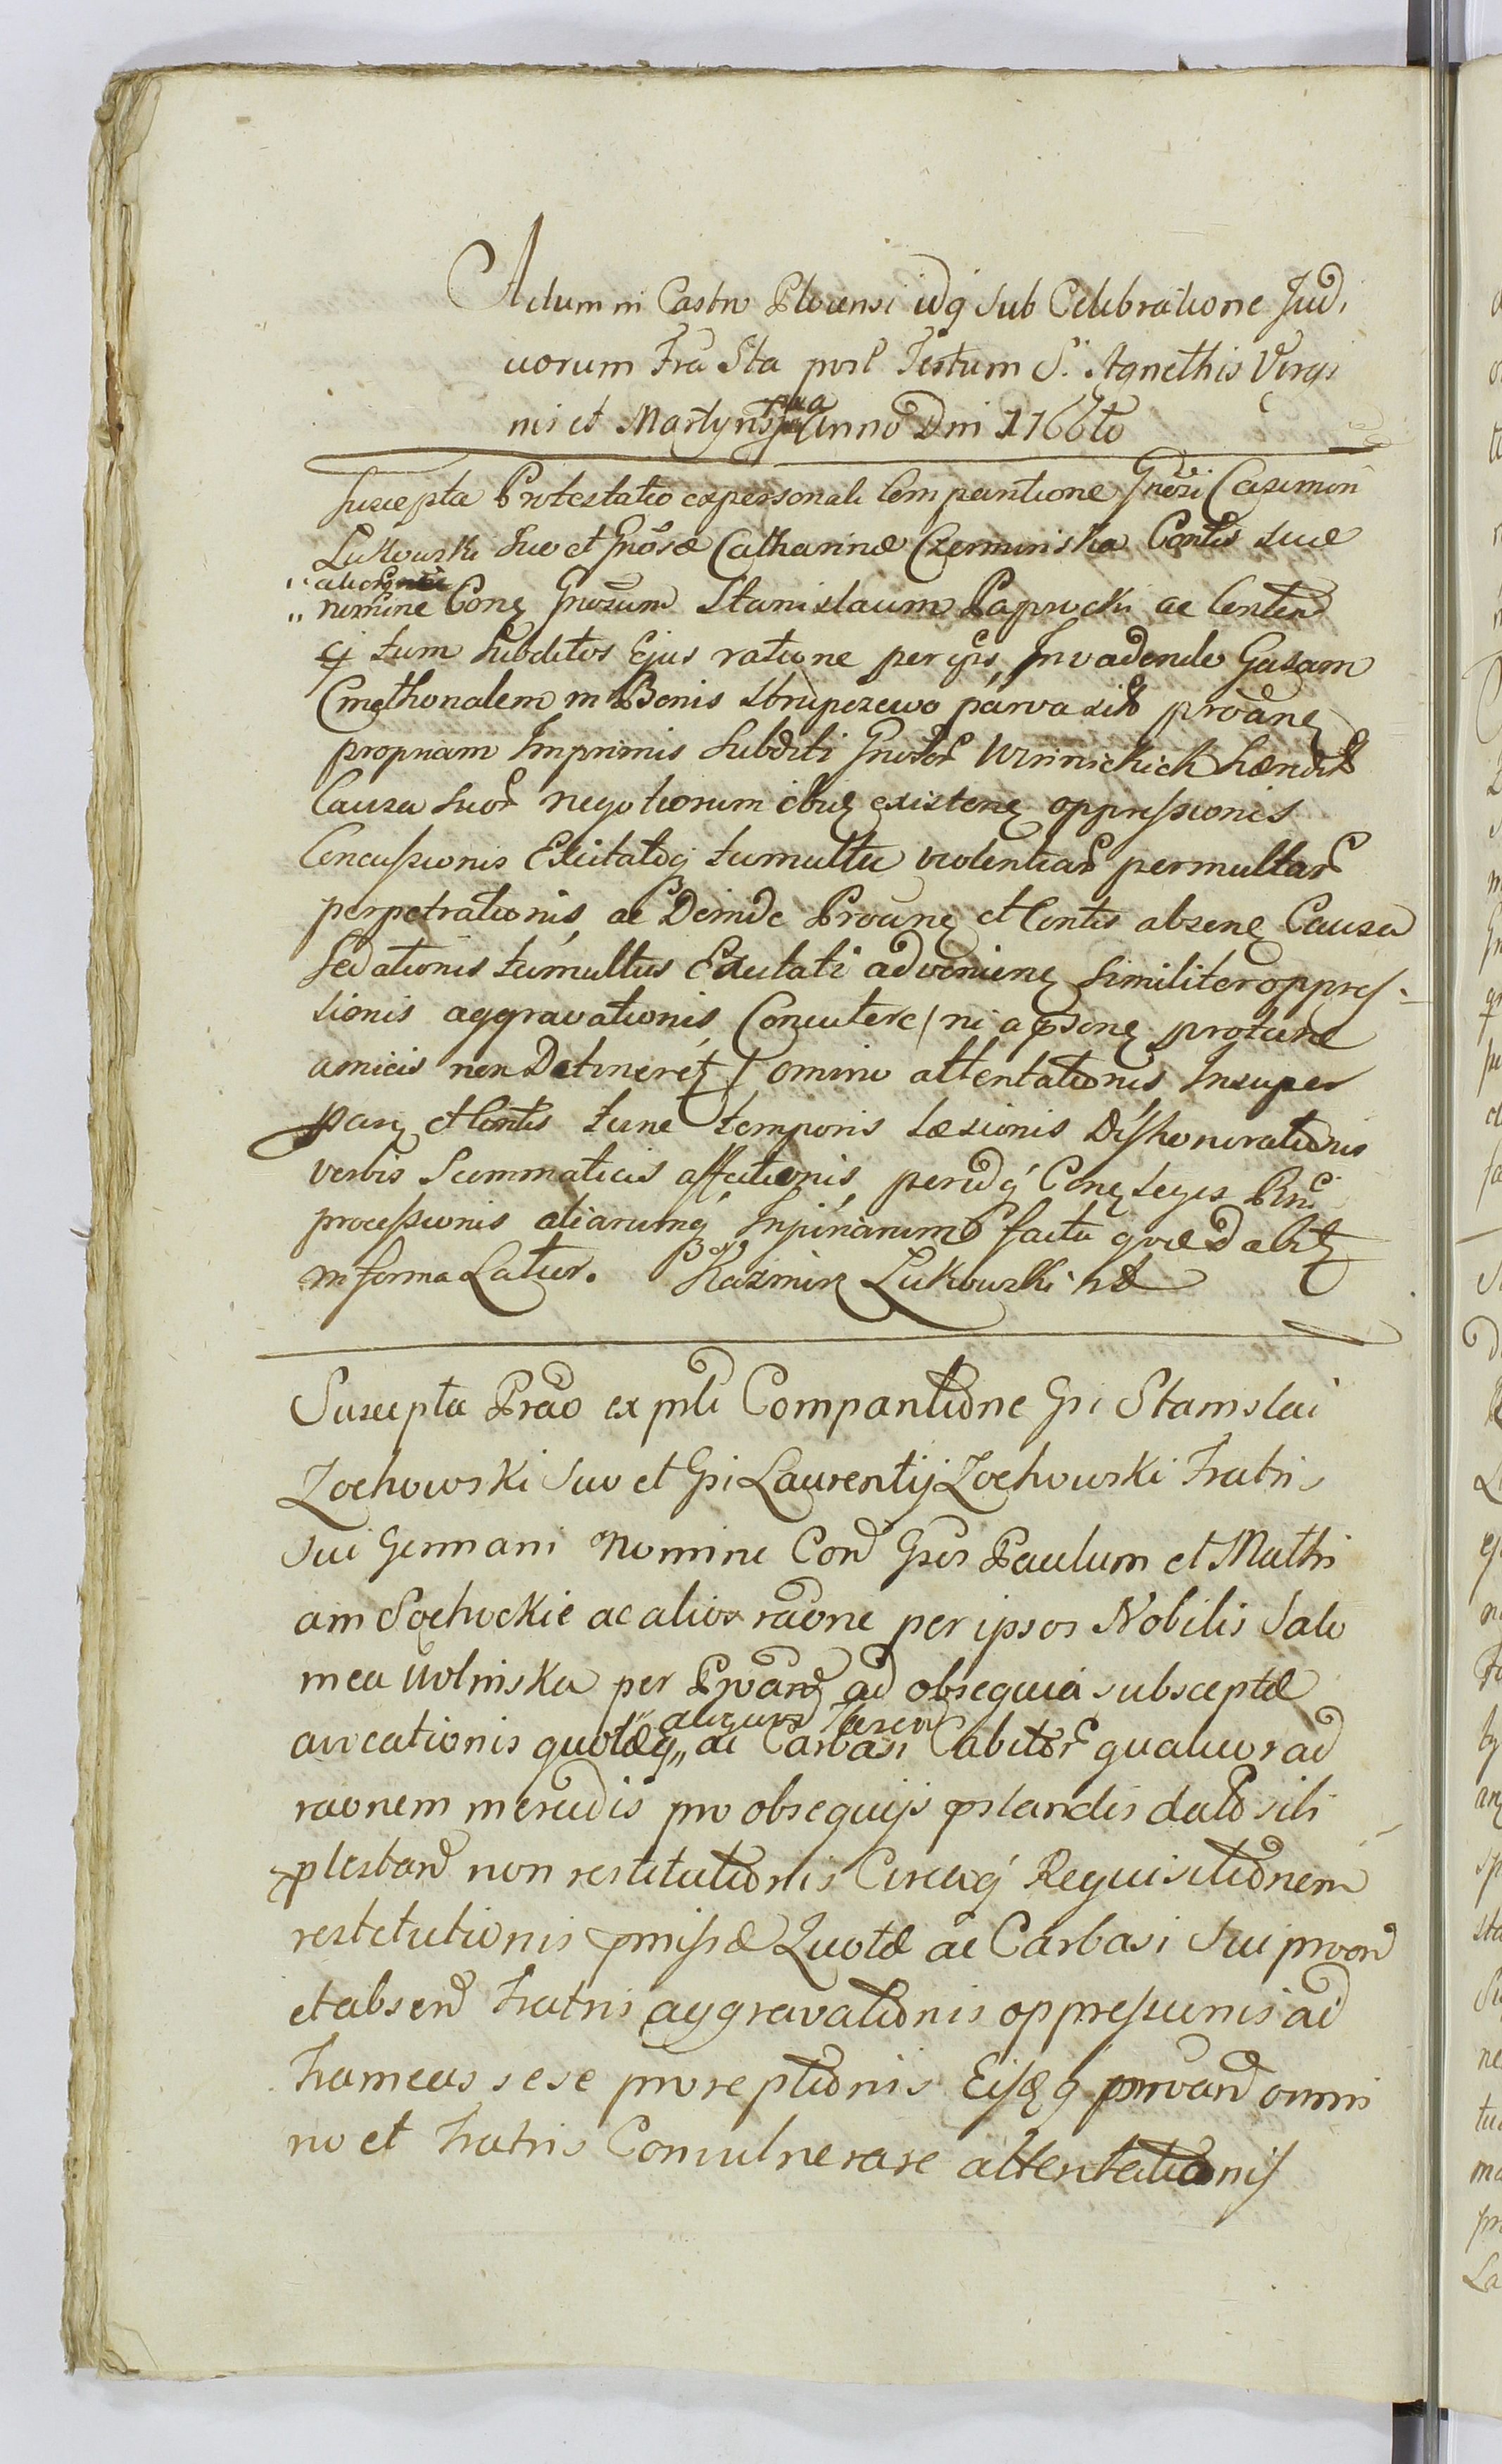 Actum in Castro Plocensi idq sub Celebratione Judi
ciorum Fra Sta post Festum S. Agnethis Virgi
nis et Martyris pxa Anno Dni 1766to
Suscepta Protestatio ex personali Comparitione Gnosi Casimiri
Lukowski suo et Gnosæ Catharinæ Czerminska Contis suæ
aliorq
nomine Conq Gnosum Stanislaum Paprocki ac Conten
tum Subditos Ejus ratione per ipsis Invadendo Gazam
Cmethonalem in Bonis Strupczewo parva sit proanq
propriam Imprimis Subditi Gnosor Winnickich hæredit
Causa suor negotiorum ibiq existenq oppressionis
Concussionis Excitatoq tumultu violentiar permultar
perpetrationis, ac Deinde Proanq et Contis absenq Causa
Sedationis tumultus Excitati advenienq similiter oppres-
sionis aggravationis, Concutere (ni a psenq protunc
amicis non Detineretz) omnino attentationis Insuper
pariq et Contis tunc temporis læsionis Dishonorationis
verbis Scommaticis affectionis, peridq Conq leges Pnc
processionis aliarumq Injuriarum facta quæ dabitz
in forma Latior. Kazmirz Lukowski mp
Suscepta Prao ex pnli Comparitione Gsi Stanislai
Zochowski suo et Gsi Laurentij Zochowski Fratris
sui Germani nomine Con Gsos Paulum et Mathi
am Sochockie ac alios raone per ipsos Nobilis Salo
mea Wolniska per Proan ad obsequia susceptæ
aliquot
avocationis quotæq ac Carbasi Cubitor quatuor ad
raonem mercedis pro obsequijs pstandis dato sibi
pstan non restitutionis Circaq Requisitionem
restitutionis pmissæ Quotæ ac Carbasi sui proan
et absen Fratris aggravationis oppressionis ad
Frameas sese proreptionis Eisq proan omni
no et Fratris Convulnerare attentationis